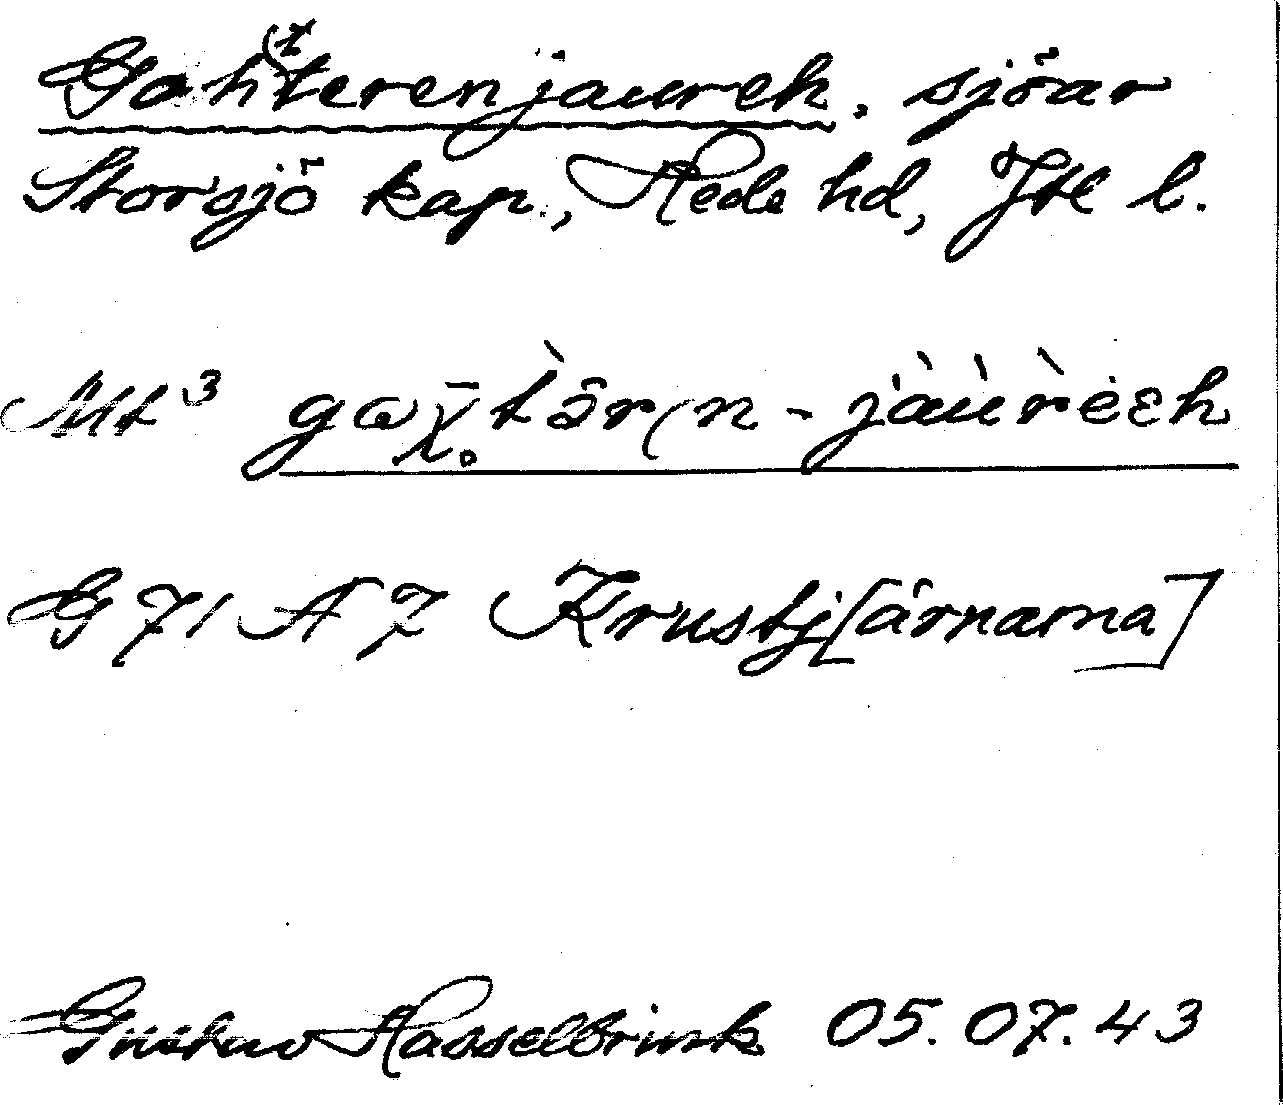 Gah(t)terenjaureh, sjöar
Storsjö kap., Rede hd, Jtl l.
Mt³ gɑχ̄.tə̄r(n - jàùrèɛh
G 71 A 7 Krustj[ärnarna]
Gustav Hasselbrink 05.07.43